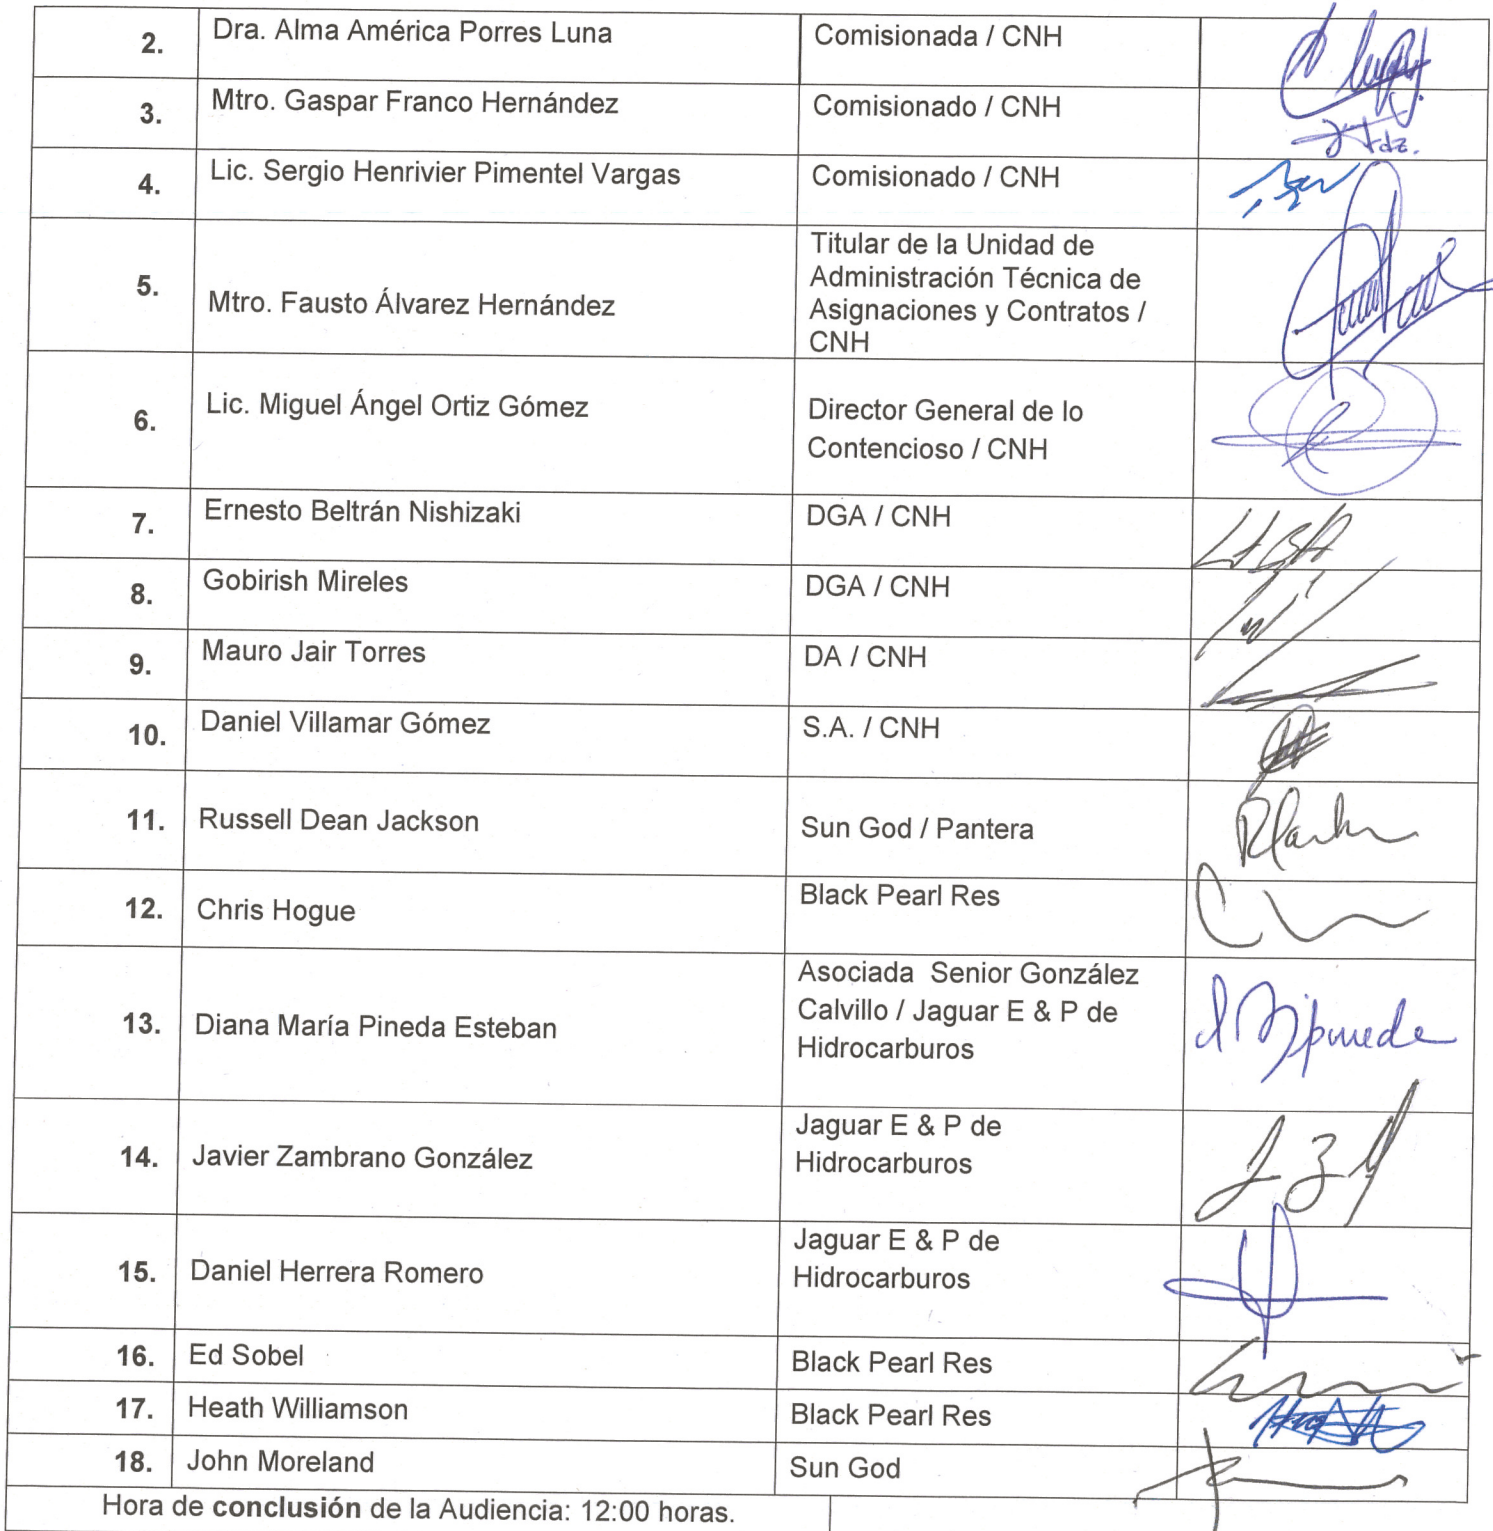 2. Dra. Alma América Porres Luna Comisionada / CNH
3. Mtro. Gaspar Franco Hernández Comisionado / CNH
4. Lic. Sergio Henrivier Pimentel Vargas Comisionado / CNH
5. Mtro. Fausto Álvarez Hernández Titular de la Unidad de
Administración Técnica de
Asignaciones y Contratos /
CNH
6. Lic. Miguel Ángel Ortiz Gómez Director General de lo
Contencioso / CNH
7. Ernesto Beltrán Nishizaki DGA / CNH
8. Gobirish Mireles DGA / CNH
9. Mauro Jair Torres DA / CNH
10. Daniel Villamar Gómez S.A. / CNH
11. Russell Dean Jackson Sun God / Pantera
12. Chris Hogue Black Pearl Res
13. Diana María Pineda Esteban Asociada Senior González
Calvillo / Jaguar E & P de
Hidrocarburos
14. Javier Zambrano González Jaguar E & P de
Hidrocarburos
15. Daniel Herrera Romero Jaguar E & P de
Hidrocarburos
16. Ed Sobel Black Pearl Res
17. Heath Williamson Black Pearl Res
18. John Moreland Sun God
Hora de conclusión de la Audiencia: 12:00 horas.